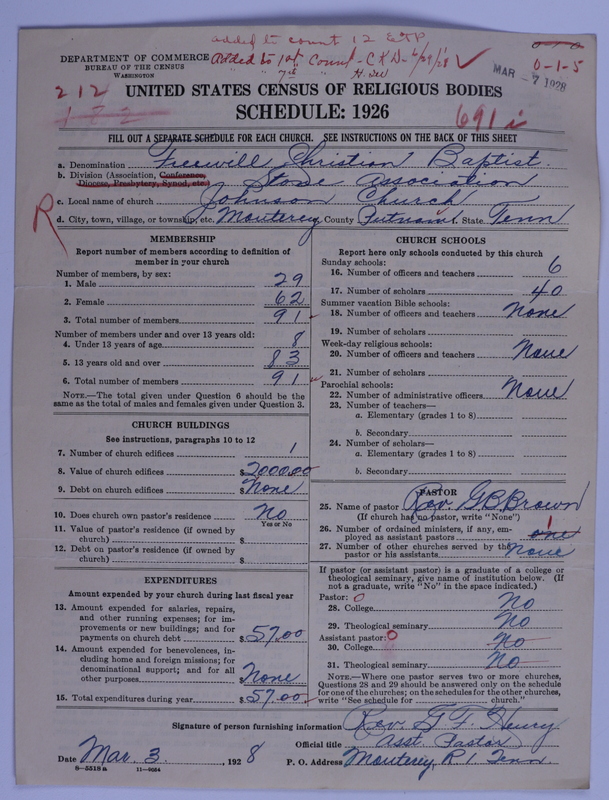 added to count 12 E&P
Added to 1st Count - CKD - 6/29/28 ✓
" " 7th " H.W
0-1-5
DEPARTMENT OF COMMERCE
BUREAU OF THE CENSUS
WASHINGTON
MAR - 7 1928
212
172
UNITED STATES CENSUS OF RELIGIOUS BODIES
SCHEDULE: 1926
691 i
FILL OUT A SEPARATE SCHEDULE FOR EACH CHURCH. SEE INSTRUCTIONS ON THE BACK OF THIS SHEET
a. Denomination Freewill Christian Baptist.
b. Division (Association, Conference, Diocese, Presbytery, Synod, etc.) Stone Association
c. Local name of church Johnson Church
R
d. City, town, village, or township, etc. Monterey County Putnam State Tenn
MEMBERSHIP
Report number of members according to definition of
member in your church
Number of members, by sex:
1. Male 29
2. Female 62
3. Total number of members 91
Number of members under and over 13 years old:
4. Under 13 years of age 8
5. 13 years old and over 83
6. Total number of members 91
NOTE.—The total given under Question 6 should be
same as the total of males and females given under Question 3.
CHURCH BUILDINGS
See instructions, paragraphs 10 to 12
7. Number of church edifices 1
8. Value of church edifices $2000.00
9. Debt on church edifices $None
10. Does church own pastor's residence? No
Yes or No
11. Value of pastor's residence (if owned by
church) $
12. Debt on pastor's residence (if owned by
church) $
EXPENDITURES
Amount expended by your church during last fiscal year
13. Amount expended for salaries, repairs,
and other running expenses; for im-
provements or new buildings; and for
payments on church debt $57.00
14. Amount expended for benevolences, in-
cluding home and foreign missions; for
denominational support; and for all
other purposes None
15. Total expenditures during year $57.00
CHURCH SCHOOLS
Report here only schools conducted by this church
Sunday schools:
16. Number of officers and teachers 6
17. Number of scholars 40
Summer vacation Bible schools:
18. Number of officers and teachers None
19. Number of scholars
Week-day religious schools:
20. Number of officers and teachers None
21. Number of scholars
Parochial schools:
22. Number of administrative officers None
23. Number of teachers—
a. Elementary (grades 1 to 8)
b. Secondary
24. Number of scholars—
a. Elementary (grades 1 to 8)
b. Secondary
PASTOR
25. Name of pastor Rev. G.B. Brown
(If church has no pastor, write "None")
26. Number of ordained ministers, if any, em-
ployed as assistant pastors one 1
27. Number of other churches served by the
pastor or his assistants None
If pastor (or assistant pastor) is a graduate of a college or
theological seminary, give name of institution below. (If
not a graduate, write "No" in the space indicated.)
Pastor: 0
28. College No
29. Theological seminary No
Assistant pastor: 0
30. College No
31. Theological seminary No
NOTE.—Where one pastor serves two or more churches,
Questions 28 and 29 should be answered only on the schedule
for one of the churches; on the schedules for the other churches,
write "See schedule for church."
Signature of person furnishing information Rev. G F. Henry
Official title Asst. Pastor
Date Mar. 3, 1928 P. O. Address Monterey, R 1. Tenn.
8—5518 a 11—9084